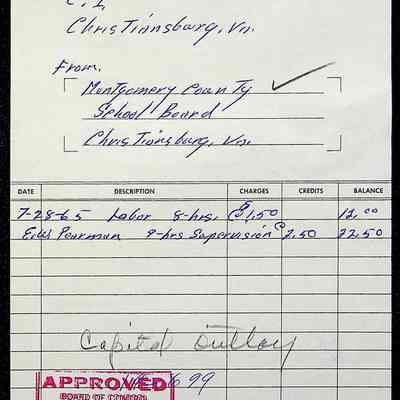 C. I.
Christiansburg, Va.
From.
Montgomery County
School Board
Christiansburg, Va.
DATE DESCRIPTION CHARGES CREDITS BALANCE
7-28-65 Labor 8-hrs. @ $1.50 12.00
E.W. Pearman 9-hrs Supervision @ 2.50 22.50
Capitol Outlay
APPROVED 699
BOARD OF